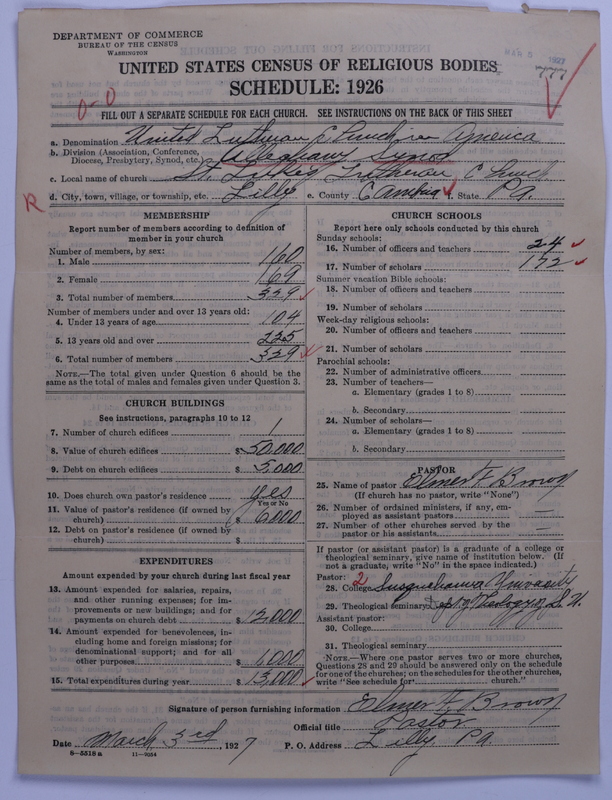 DEPARTMENT OF COMMERCE
BUREAU OF THE CENSUS
WASHINGTON
UNITED STATES CENSUS OF RELIGIOUS BODIES
SCHEDULE: 1926
777
0-0
FILL OUT A SEPARATE SCHEDULE FOR EACH CHURCH. SEE INSTRUCTIONS ON THE BACK OF THIS SHEET
a. Denomination United Lutheran Church in America
b. Division (Association, Conference, Diocese, Presbytery, Synod, etc.) Alleghany Synod
c. Local name of church St. Lukes Lutheran Church
R
d. City, town, village, or township, etc. Lilly e. County Cambria f. State Pa.
MEMBERSHIP
Report number of members according to definition of
member in your church
Number of members, by sex:
1. Male 160
2. Female 169
3. Total number of members 329
Number of members under and over 13 years old:
4. Under 13 years of age 104
5. 13 years old and over 225
6. Total number of members 329
NOTE.—The total given under Question 6 should be
same as the total of males and females given under Question 3.
CHURCH BUILDINGS
See instructions, paragraphs 10 to 12
7. Number of church edifices 1
8. Value of church edifices $50,000
9. Debt on church edifices $5,000
10. Does church own pastor's residence yes
Yes or No
11. Value of pastor's residence (if owned by
church) $6,000
12. Debt on pastor's residence (if owned by
church) $
EXPENDITURES
Amount expended by your church during last fiscal year
13. Amount expended for salaries, repairs,
and other running expenses; for im-
provements or new buildings; and for
payments on church debt $12,000
14. Amount expended for benevolences, in-
cluding home and foreign missions; for
denominational support; and for all
other purposes $1,000
15. Total expenditures during year $13,000
CHURCH SCHOOLS
Report here only schools conducted by this church
Sunday schools:
16. Number of officers and teachers 24
17. Number of scholars 172
Summer vacation Bible schools:
18. Number of officers and teachers
19. Number of scholars
Week-day religious schools:
20. Number of officers and teachers
21. Number of scholars
Parochial schools:
22. Number of administrative officers
23. Number of teachers—
a. Elementary (grades 1 to 8)
b. Secondary
24. Number of scholars—
a. Elementary (grades 1 to 8)
b. Secondary
PASTOR
25. Name of pastor Elmer F. Brown
(If church has no pastor, write "None")
26. Number of ordained ministers, if any, em-
ployed as assistant pastors —
27. Number of other churches served by the
pastor or his assistants —
If pastor (or assistant pastor) is a graduate of a college or
theological seminary, give name of institution below. (If
not a graduate, write "No" in the space indicated.)
Pastor: 2
28. College Susquehanna University
29. Theological seminary Dept of Theology of S. U.
Assistant pastor:
30. College
31. Theological seminary
NOTE.—Where one pastor serves two or more churches,
Questions 28 and 29 should be answered only on the schedule
for one of the churches; on the schedules for the other churches,
write "See schedule for church."
Signature of person furnishing information Elmer F. Brown
Official title Pastor
Date March 3rd, 1927 P. O. Address Lilly Pa
8—5518 a 11—9054